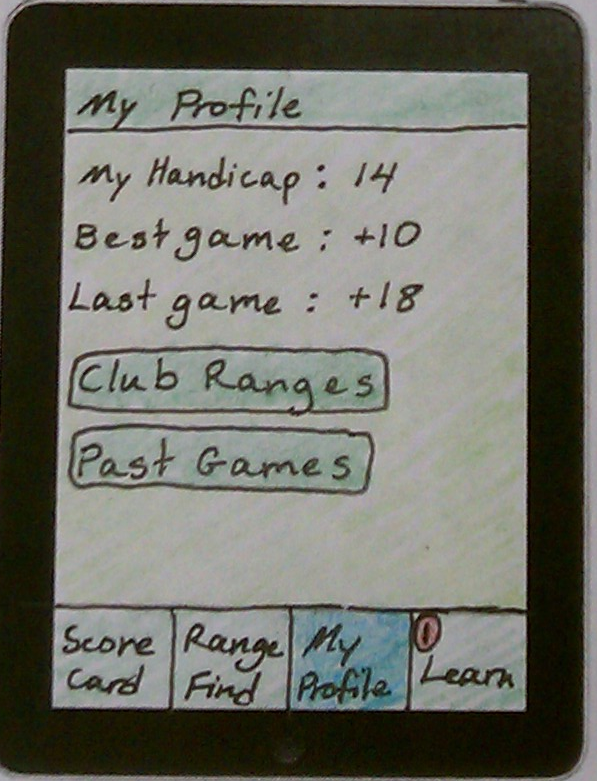 My Profile
My Handicap: 14
Best game: +10
Last game: +18
Club Ranges
Past Games
Score
Card
Range
Find
My
Profile
1
Learn